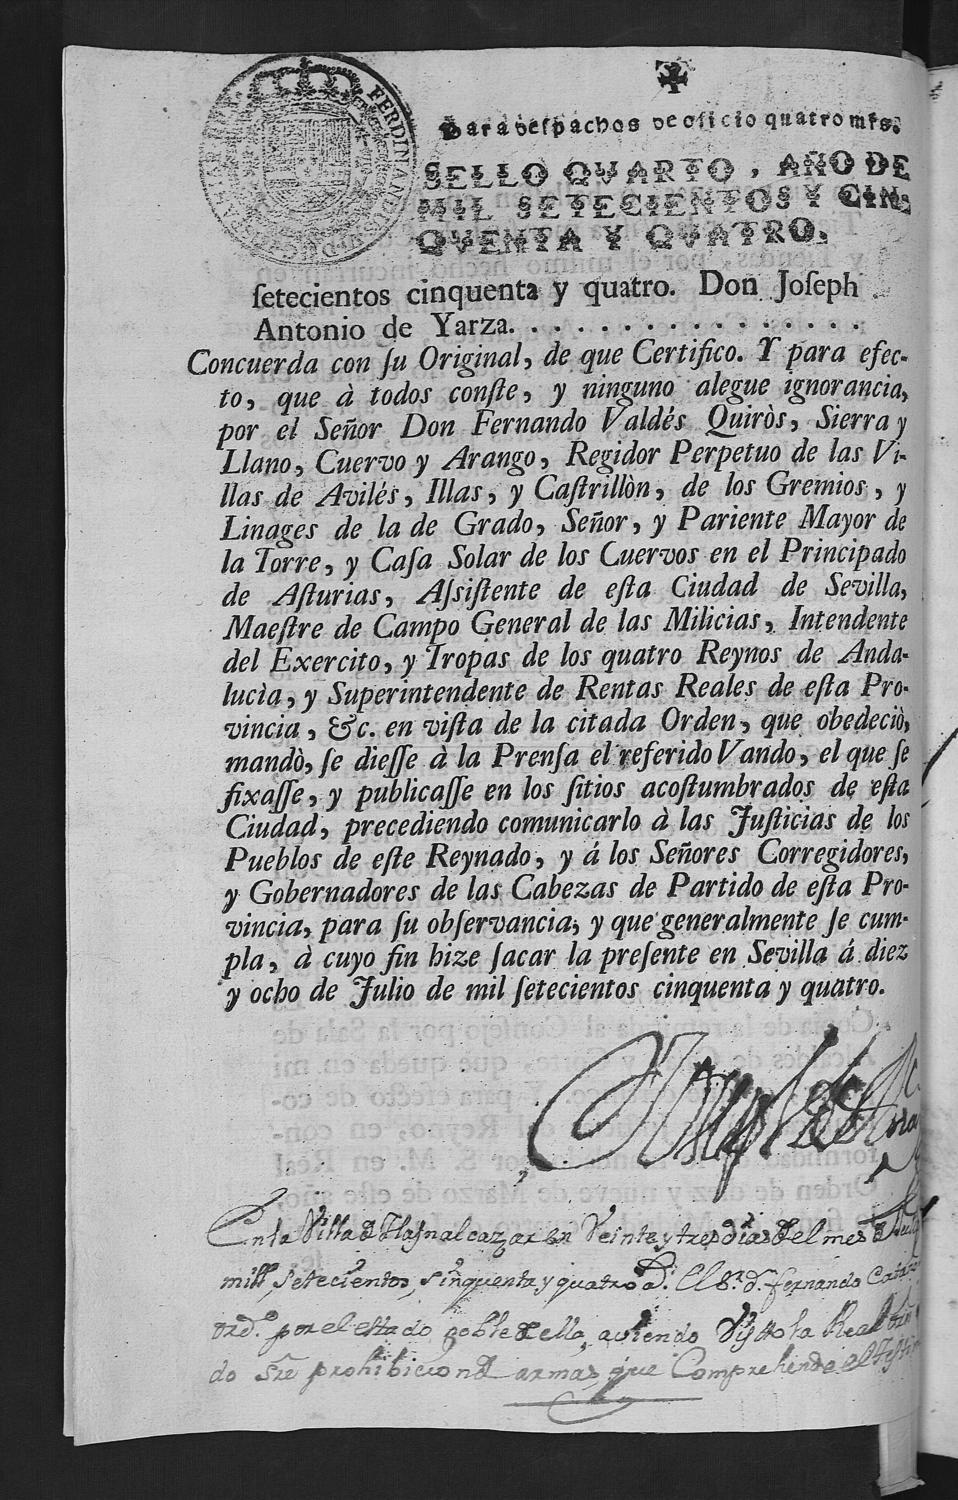 FERDINANDUS
Para despachos de oficio quatro mrs.
SELLO QUARTO, AÑO DE
MIL SETECIENTOS Y CIN-
QUENTA Y QUATRO.
ſetecientos cinquenta y quatro. Don Joſeph
Antonio de Yarza. . . . . . . . . . . . . . . .
Concuerda con ſu Original, de que Certifico. Y para efec-
to, que à todos conſte, y ninguno alegue ignorancia,
por el Señor Don Fernando Valdés Quiròs, Sierra y
Llano, Cuervo y Arango, Regidor Perpetuo de las Vi-
llas de Avilés, Illas, y Caſtrillòn, de los Gremios, y
Linages de la de Grado, Señor, y Pariente Mayor de
la Torre, y Caſa Solar de los Cuervos en el Principado
de Aſturias, Aſsiſtente de eſta Ciudad de Sevilla,
Maeſtre de Campo General de las Milicias, Intendente
del Exercito, y Tropas de los quatro Reynos de Anda-
lucìa, y Superintendente de Rentas Reales de eſta Pro-
vincia, &c. en viſta de la citada Orden, que obedeciò,
mandò, ſe dieſſe à la Prenſa el referido Vando, el que ſe
fixaſſe, y publicaſſe en los ſitios acoſtumbrados de eſta
Ciudad, precediendo comunicarlo à las Juſticias de los
Pueblos de eſte Reynado, y á los Señores Corregidores,
y Gobernadores de las Cabezas de Partido de eſta Pro-
vincia, para ſu obſervancia, y que generalmente ſe cum-
pla, à cuyo fin hize ſacar la preſente en Sevilla á diez
y ocho de Julio de mil ſetecientos cinquenta y quatro.
En la Villa de Haznalcazar en Veinte y tres dias del mes de
mill, setecientos, sinquenta y quatro a.s El S.r d.n fernando
ord.o por el estado noble de ella, auiendo Visto la Real
do sre prohibicion de armas, que Comprehende el